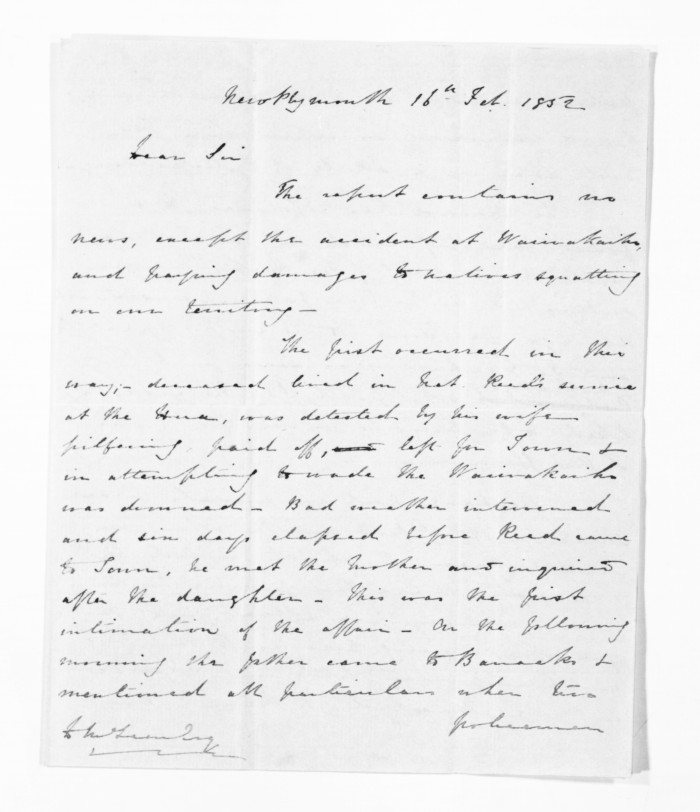 New Plymouth 16th Feb. 1852
Dear Sir
The report contains no
news, except the accident at Waiwakaiho,
and paying damages to natives squatting
on our Territory -
The first occurred in this
way; - deceased lived in Nat. Read's service
at the Hua, was detected by his wife
pilfering, paid off, left for Town &
in attempting to wade the Waiwakaiho
was drowned - Bad weather intervened
and six days elapsed before Read came
to Town, he met the mother and inquired
after the daughter - This was the first
intimation of the affair - On the following
morning the father came to Barracks &
mentioned all particulars when two
policemen
D. McLean Esq